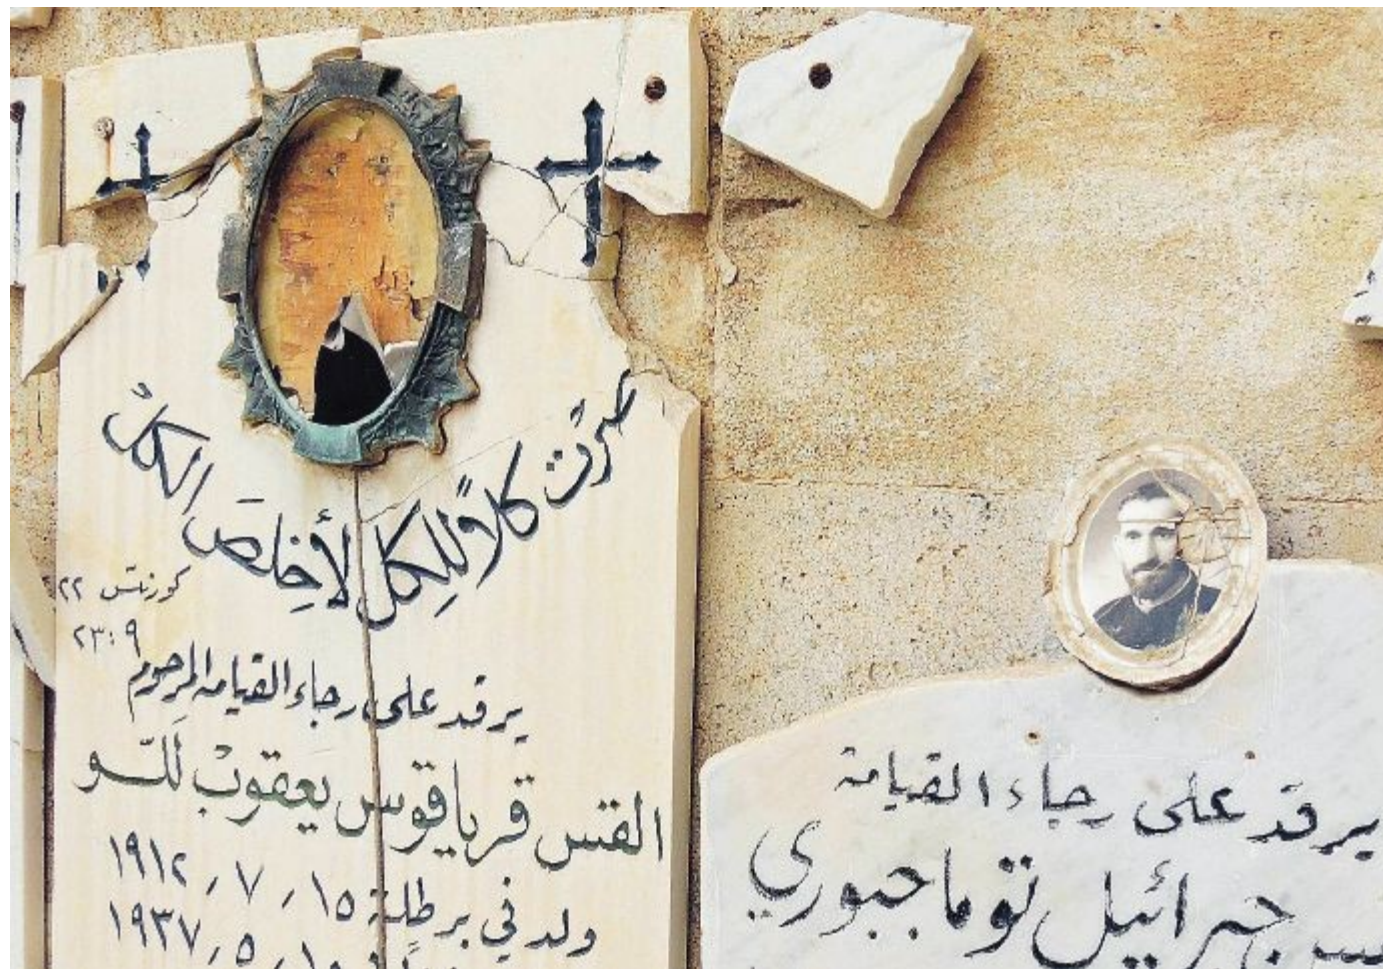 صِرْتُ كلاً لِلكلِّ لأُخلِصَ الكلّ
كورنتس ٢٢
٢٣:٩
يرقد على رجاء القيامة المرحوم
القس قرياقوس يعقوب للّو
ولد في برطلة ١٥ / ٧ / ١٩١٢
١٩٣٧ / ٥ / ١٠
يرقد على رجاء القيامة
جبرائيل توما جبوري